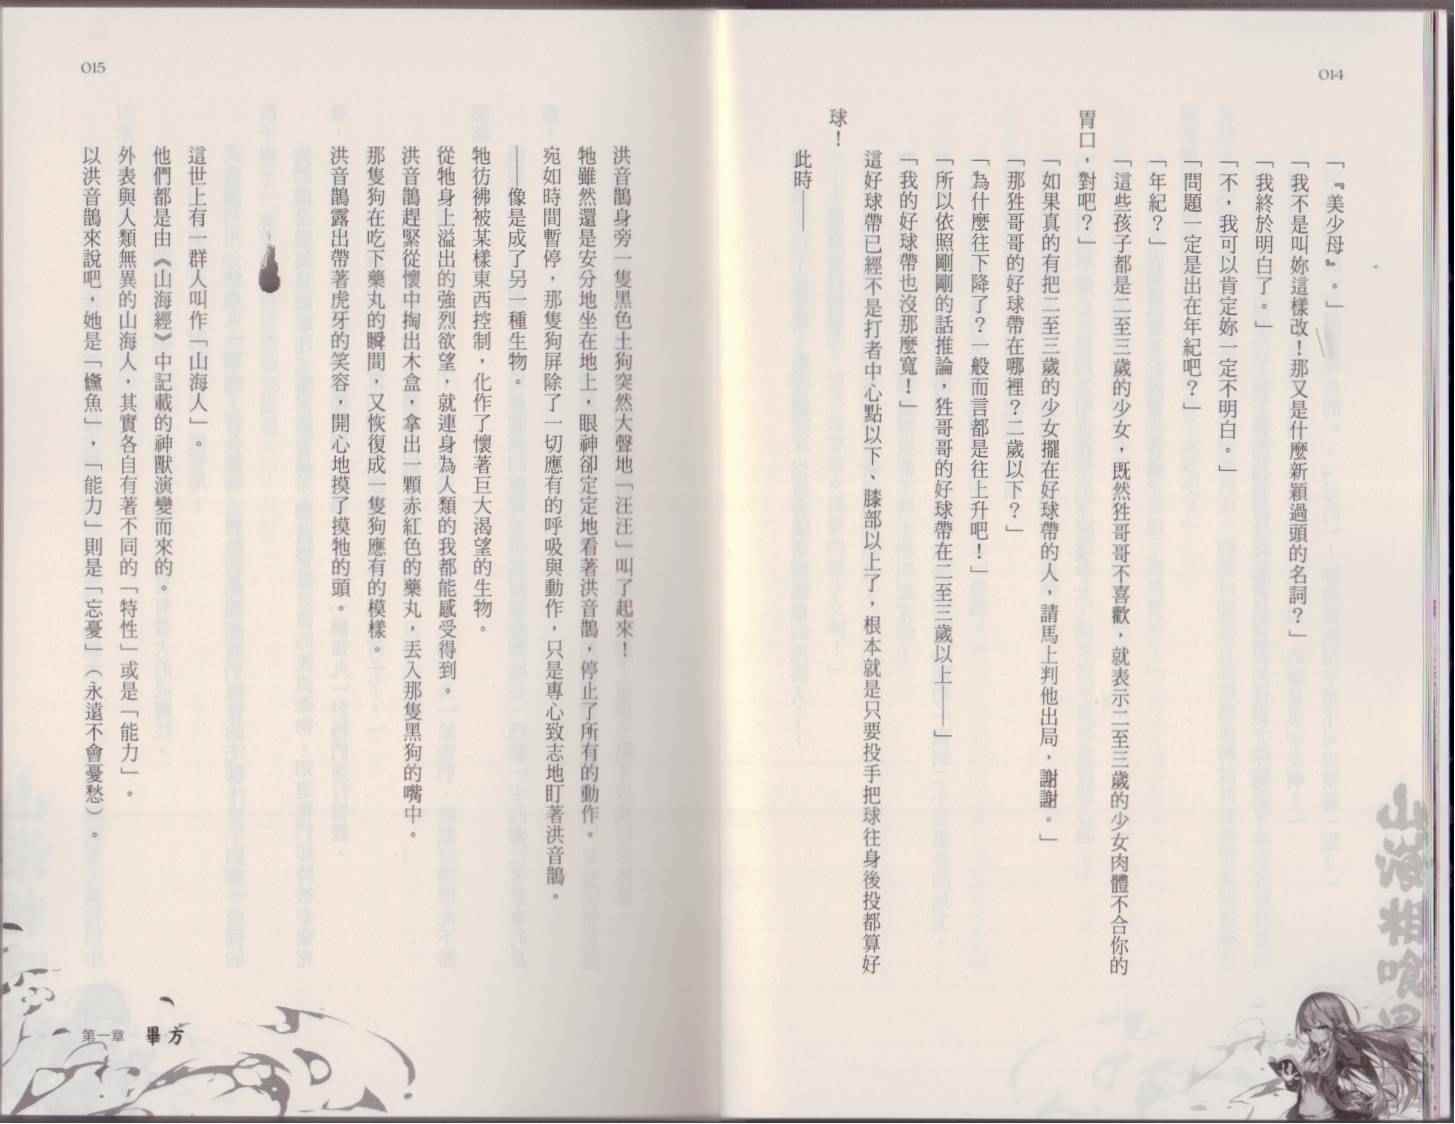 014
「『美少母』。」
「我不是叫妳這樣改！那又是什麼新穎過頭的名詞？」
「我終於明白了。」
「不，我可以肯定妳一定不明白。」
「問題一定是出在年紀吧？」
「年紀？」
「這些孩子都是二至三歲的少女，既然狌哥哥不喜歡，就表示二至三歲的少女肉體不合你的
胃口，對吧？」
「如果真的有把二至三歲的少女擺在好球帶的人，請馬上判他出局，謝謝。」
「那狌哥哥的好球帶在哪裡？二歲以下？」
「為什麼往下降了？一般而言都是往上升吧！」
「所以依照剛剛的話推論，狌哥哥的好球帶在二至三歲以上——」
「我的好球帶也沒那麼寬！」
這好球帶已經不是打者中心點以下、膝部以上了，根本就是只要投手把球往身後投都算好
球！
此時——
山海相喰
015
洪音鵲身旁一隻黑色土狗突然大聲地「汪汪」叫了起來！
牠雖然還是安分地坐在地上，眼神卻定定地看著洪音鵲，停止了所有的動作。
宛如時間暫停，那隻狗屏除了一切應有的呼吸與動作，只是專心致志地盯著洪音鵲。
——像是成了另一種生物。
牠彷彿被某樣東西控制，化作了懷著巨大渴望的生物。
從牠身上溢出的強烈欲望，就連身為人類的我都能感受得到。
洪音鵲趕緊從懷中掏出木盒，拿出一顆赤紅色的藥丸，丟入那隻黑狗的嘴中。
那隻狗在吃下藥丸的瞬間，又恢復成一隻狗應有的模樣。
洪音鵲露出帶著虎牙的笑容，開心地摸了摸牠的頭。
這世上有一群人叫作「山海人」。
他們都是由《山海經》中記載的神獸演變而來的。
外表與人類無異的山海人，其實各自有著不同的「特性」或是「能力」。
以洪音鵲來說吧，她是「儵魚」，「能力」則是「忘憂」（永遠不會憂愁）。
第一章 畢方